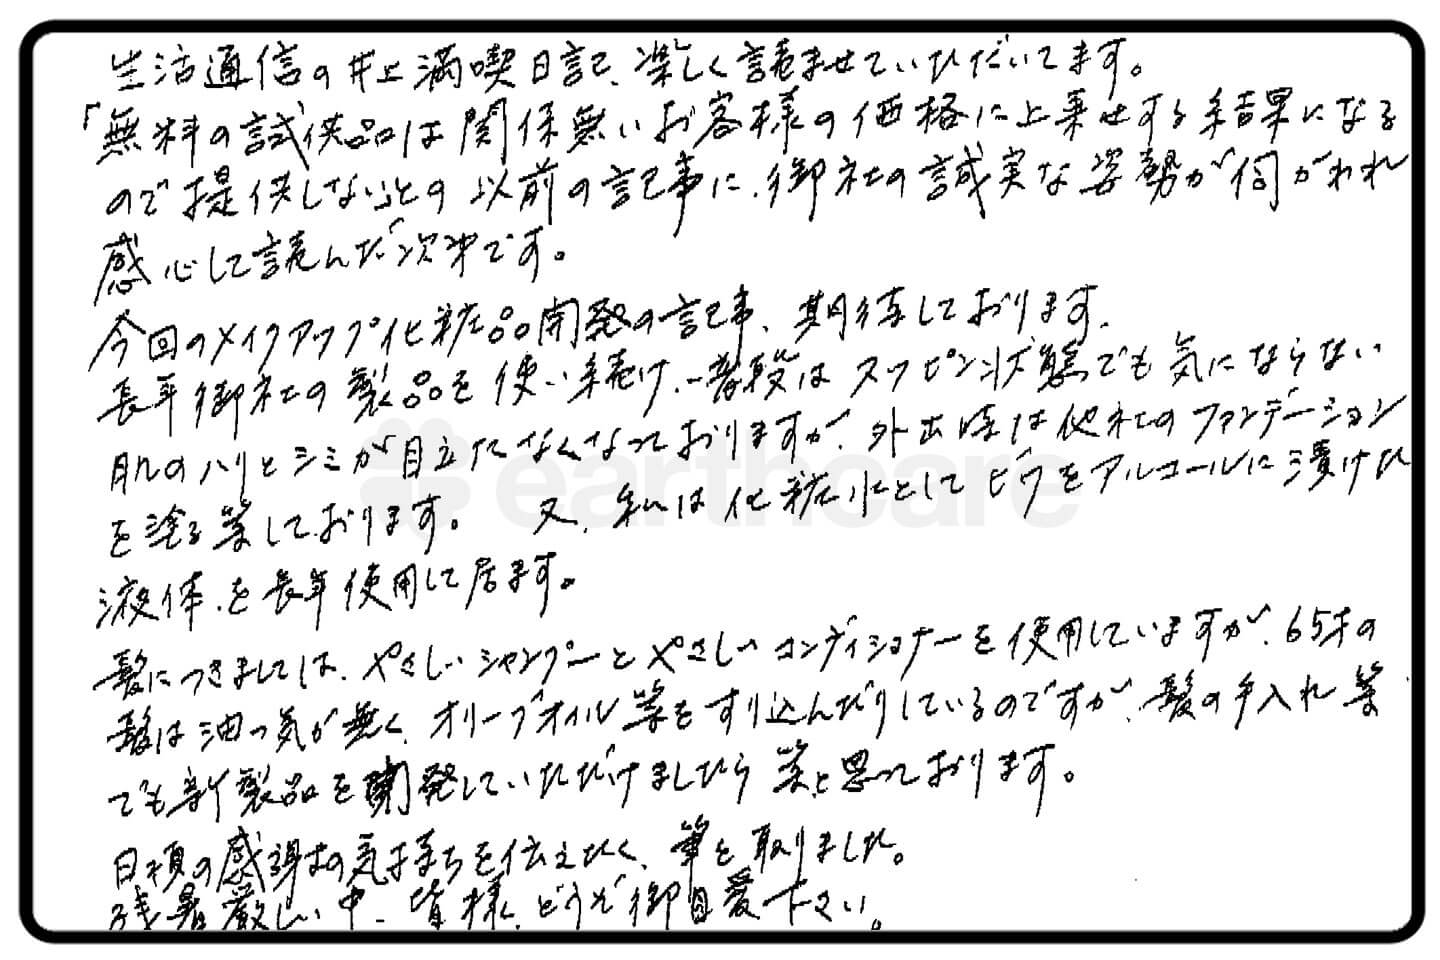 生活通信の井上満喫日記、楽しく読ませていただいてます。
「無料の試供品は関係無いお客様の価格に上乗せする結果になる
ので提供しない」との以前の記事に、御社の誠実な姿勢が伺がわれ
感心して読んだ次第です。
今回のメイクアップ化粧品開発の記事、期待しております。
長年御社の製品を使い続け、普段はスッピン状態でも気にならない
肌のハリとシミが目立たなくなっておりますが、外出時は他社のファンデーション
を塗る等しております。 又、私は化粧水としてビワをアルコールに漬けた
液体を長年使用して居ます。
髪につきましては、やさしいシャンプーとやさしいコンディショナーを使用していますが、65才の
髪は油っ気が無く、オリーブオイル等をすり込んだりしているのですが、髪の手入れ等
でも新製品を開発していただけましたら等と思っております。
日頃の感謝の気持ちを伝えたく、筆を取りました。
残暑厳しい中、皆様、どうぞ御自愛下さい。
earthcare